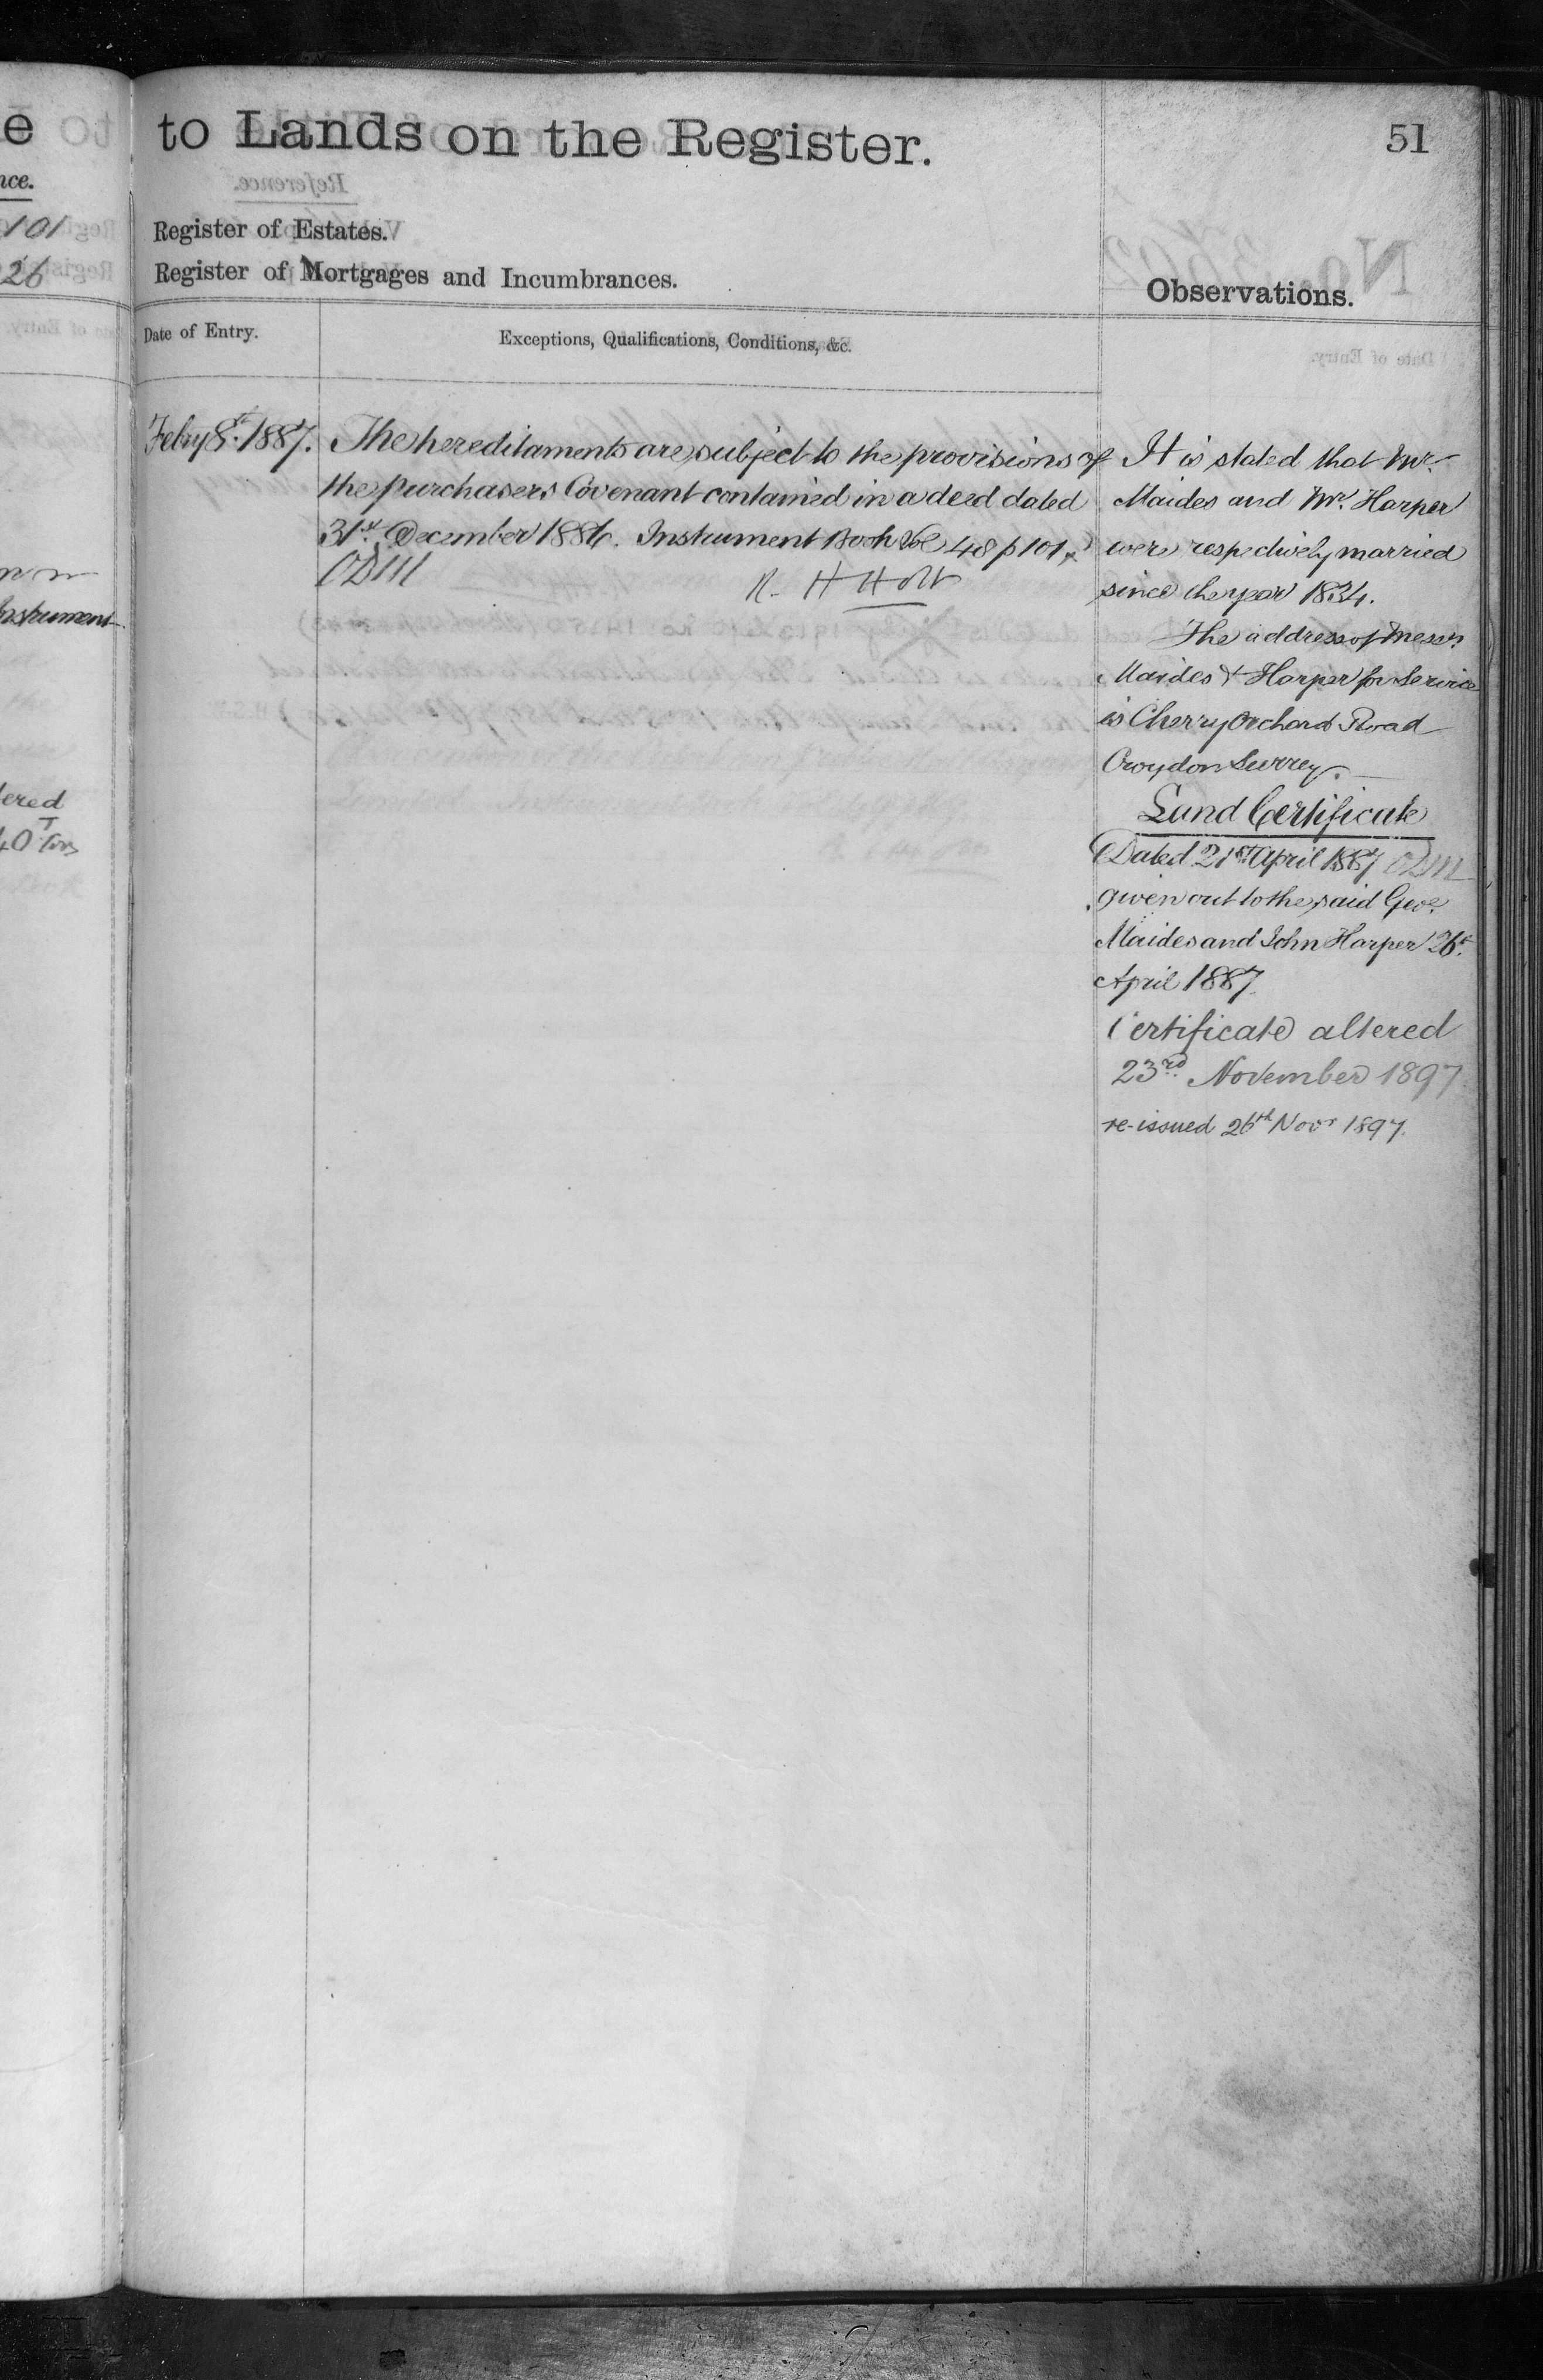 to Lands on the Register.
51
Register of Estates.
Register of Mortgages and Incumbrances.
Observations.
Date of Entry.
Exceptions, Qualifications, Conditions, &c.
Feby 8th. 1887.
The hereditaments are subject to the provisions of
the purchasers Covenant contained in a deed dated
31st. December 1886. Instrument Book Vol 48 p 101
R. H Holt
It is stated that Mr.
Maides and Mr. Harper
were respectively married
since the year 1834.
The address of Messrs.
Maides & Harper for Service
is Cherry Orchard Road
Croydon Surrey.
Land Certificate
Dated 21st April 1887
given out to the said Geoe.
Maides and John Harper 26t.
April 1887.
Certificate altered
23rd November 1897
re-issued 26th Novr 1897.
nce.
101
26
Instrument
ered
40